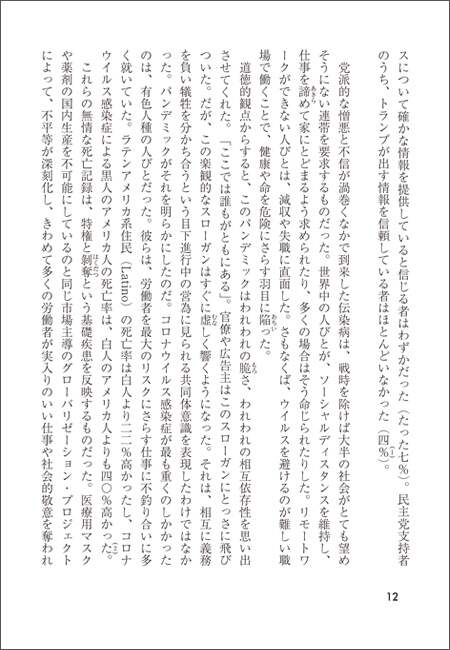 スについて確かな情報を提供していると信じる者はわずかだった（たった七％）。民主党支持者
のうち、トランプが出す情報を信頼している者はほとんどいなかった（四％）。(1)
党派的な憎悪と不信が渦巻くなかで到来した伝染病は、戦時を除けば大半の社会がとても望め
そうにない連帯を要求するものだった。世界中の人びとが、ソーシャルディスタンスを維持し、
仕事を諦めて家にとどまるよう求められたり、多くの場合はそう命じられたりした。リモートワ
ークができない人びとは、減収や失職に直面した。さもなくば、ウイルスを避けるのが難しい職
場で働くことで、健康や命を危険にさらす羽目に陥った。
道徳的観点からすると、このパンデミックはわれわれの脆さ、われわれの相互依存性を思い出
させてくれた。「ここでは誰もがともにある」。官僚や広告主はこのスローガンにとっさに飛び
ついた。だが、この楽観的なスローガンはすぐに虚しく響くようになった。それは、相互に義務
を負い犠牲を分かち合うという目下進行中の営為に見られる共同体意識を表現したわけではなか
った。パンデミックがそれを明らかにしたのだ。コロナウイルス感染症が最も重くのしかかった
のは、有色人種の人びとだった。彼らは、労働者を最大のリスクにさらす仕事に不釣り合いに多
く就いていた。ラテンアメリカ系住民（Latino）の死亡率は白人より二二％高かったし、コロナ
ウイルス感染症による黒人のアメリカ人の死亡率は、白人のアメリカ人よりも四〇％高かった。(2)
これらの無情な死亡記録は、特権と剝奪という基礎疾患を反映するものだった。医療用マスク
や薬剤の国内生産を不可能にしているのと同じ市場主導のグローバリゼーション・プロジェクト
によって、不平等が深刻化し、きわめて多くの労働者が実入りのいい仕事や社会的敬意を奪われ
12